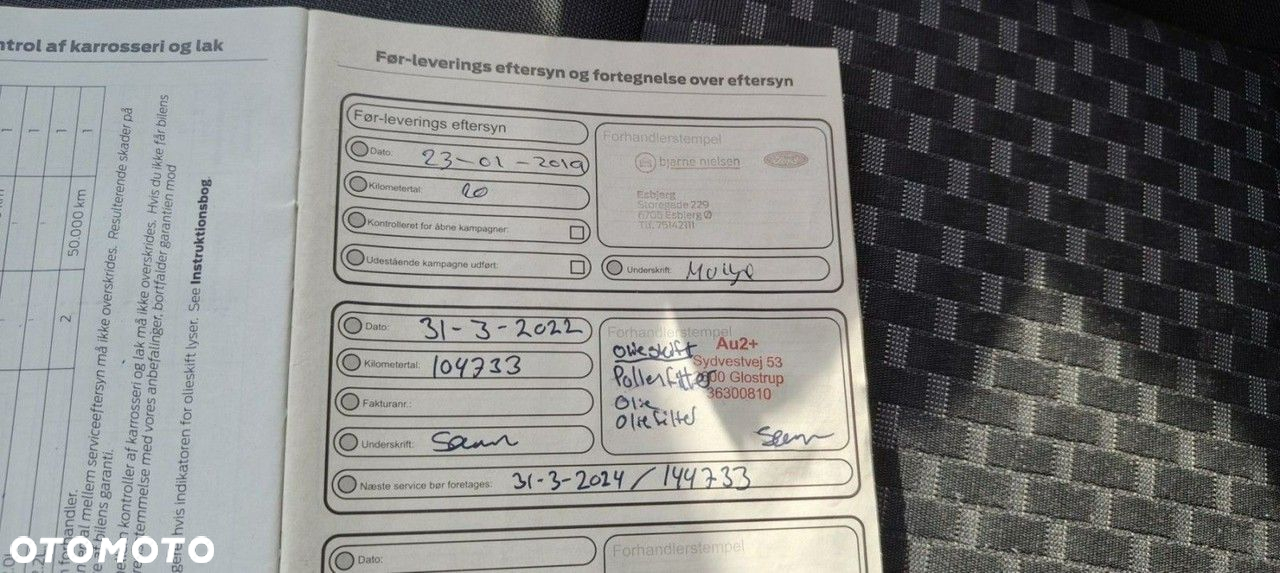 ntrol af karrosseri og lak
50.000 km
2
1
1
1
1
må ikke overskrides. Resulterende skader på
kontroller af karrosseri og lak må ikke overskrides. Hvis du ikke får bilens
med vores anbefalinger, bortfalder garantien mod
hvis indikatoren for olieskift lyser. See Instruktionsbog.
Før-leverings eftersyn og fortegnelse over eftersyn
Før-leverings eftersyn
Dato: 23-01-2019
Kilometertal: 20
Kontrolleret for åbne kampagner:
Udestående kampagne udført:
Forhandlerstempel
bjarne nielsen
Ford
Esbjerg
Storegade 229
6705 Esbjerg Ø
Tlf. 75142111
Underskrift:
Dato: 31-3-2022
Kilometertal: 104733
Fakturanr.:
Underskrift:
Forhandlerstempel
Olieskift
Pollenfilter
Olie
Oliefilter
Au2+
Sydvestvej 53
00 Glostrup
36300810
Næste service bør foretages: 31-3-2024 / 144733
Dato:
Forhandlerstempel
OTOMOTO